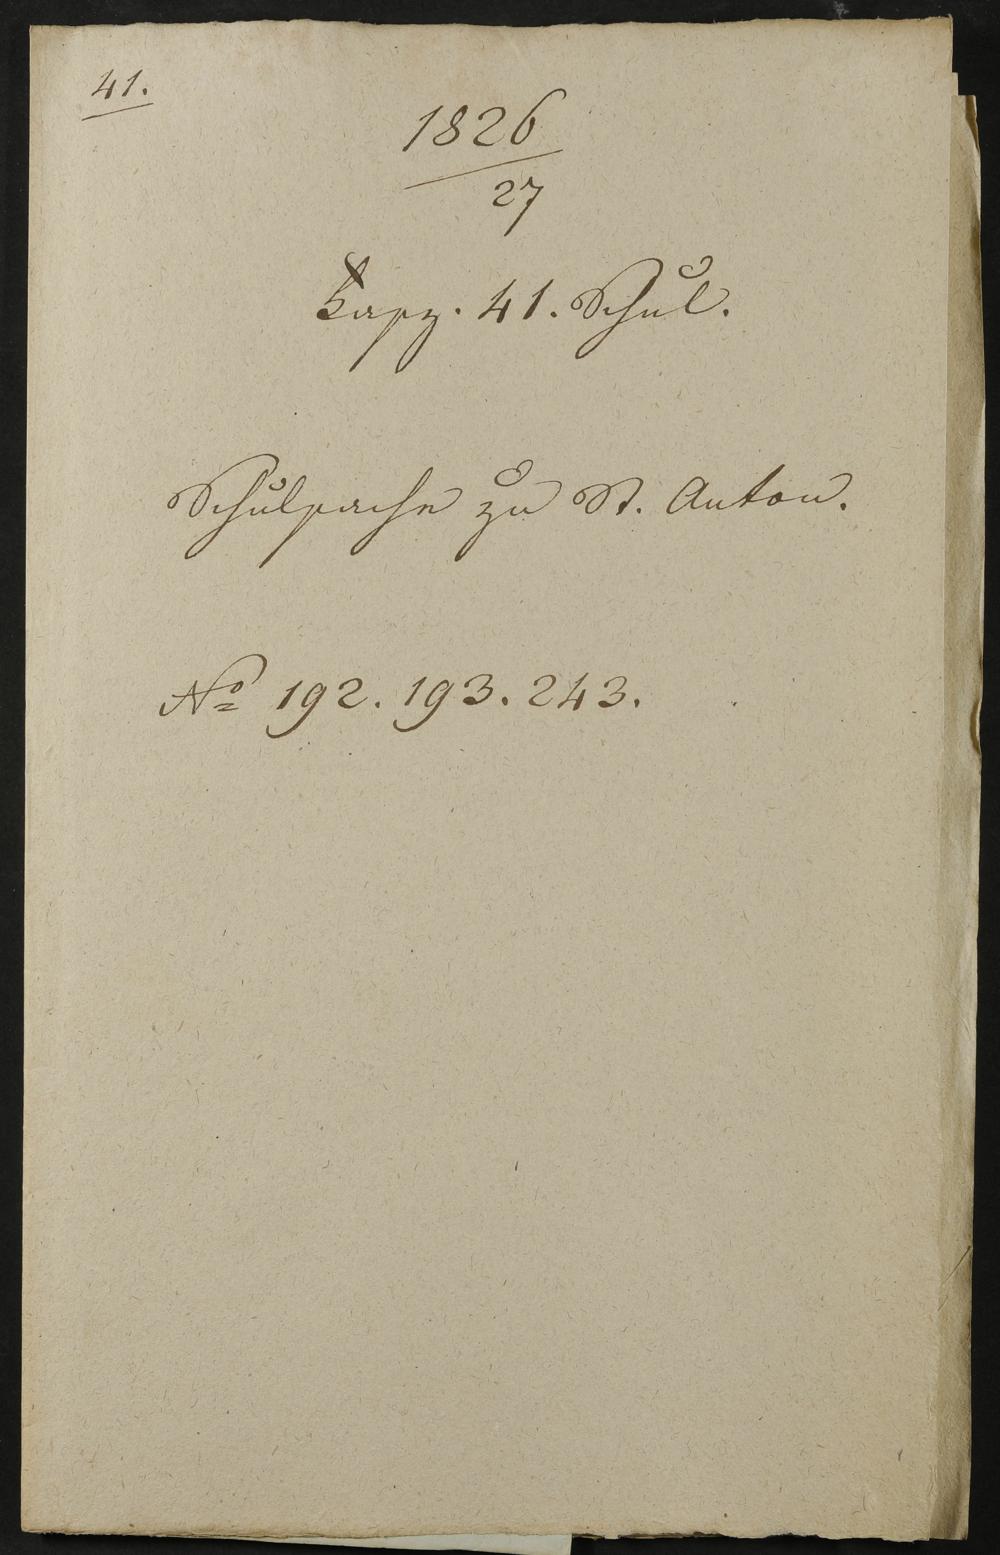 41.
1826
27
Fasz. 41. Schul.
Schulsache zu St. Anton.
No 192. 193. 243.